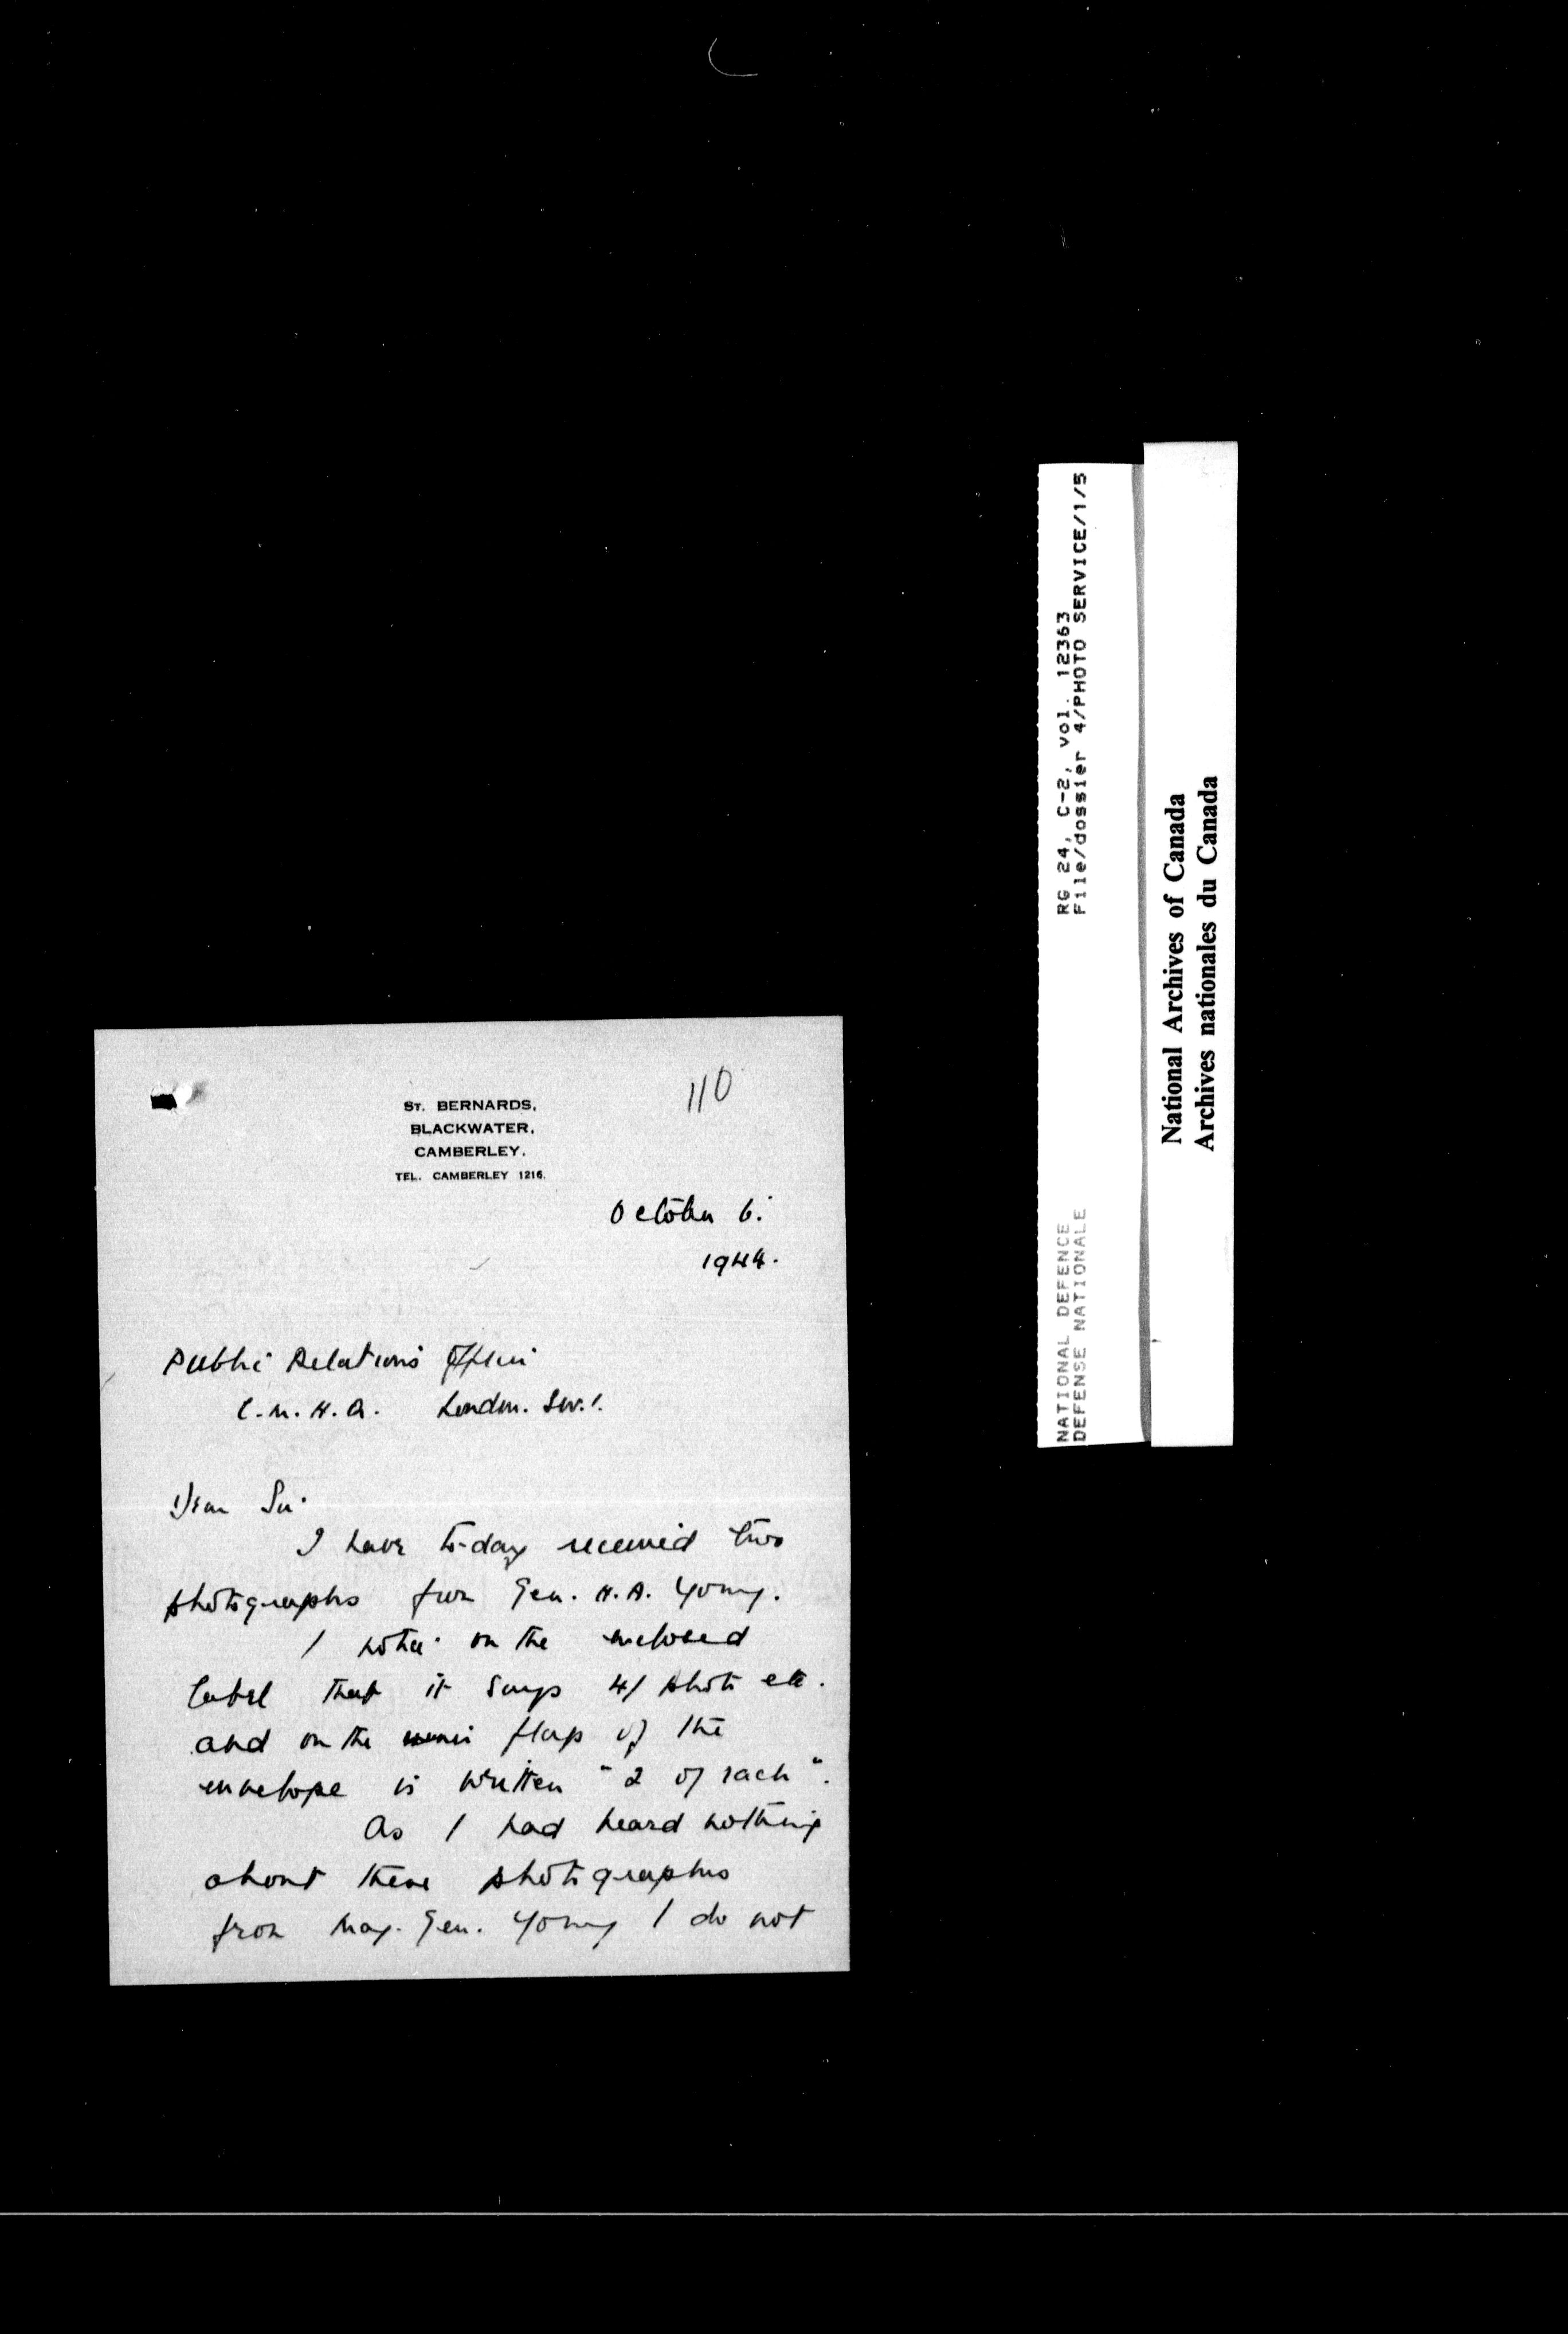 110
ST. BERNARDS,
BLACKWATER,
CAMBERLEY.
TEL. CAMBERLEY 1216.
October 6.
1944.
Public Relations Officer
C.M.H.Q. London. S.W.1.
Dear Sir
I have to-day received two
photographs from Gen. H.A. Young.
I notice on the enclosed
label that it says 4/ photo etc.
and on the flap of the
envelope is written "2 of each".
As I had heard nothing
about these photographs
from Maj. Gen. Young I do not
RG 24, C-2, vol. 12363
File/dossier 4/PHOTO SERVICE/1/5
NATIONAL DEFENCE
DEFENSE NATIONALE
National Archives of Canada
Archives nationales du Canada